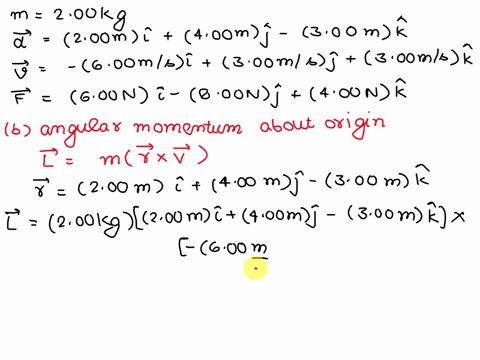 m = 2.00kg
d⃗ = (2.00m) î + (4.00m) ĵ - (3.00 m) k̂
v⃗ = -(6.00m/s) î + (3.00 m/s) ĵ + (3.00m/s) k̂
F⃗ = (6.00N) î - (8.00N) ĵ + (4.00N) k̂
(b) angular momentum about origin
L⃗ = m(r⃗ × v⃗)
r⃗ = (2.00m) î + (4.00 m) ĵ - (3.00 m) k̂
L⃗ = (2.00kg) [(2.00m) î + (4.00m) ĵ - (3.00m) k̂] ×
[-(6.00 m